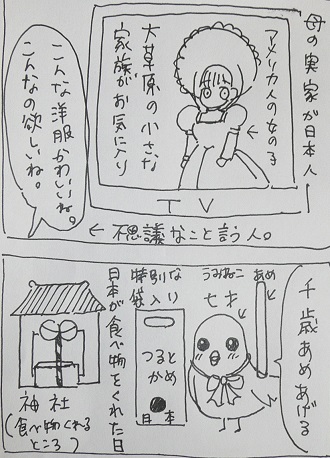 母の実家が日本人
アメリカ人の女の子
大草原の小さな
家族がお気に入り
こんな洋服かわいいね。
こんなの欲しいね。
TV
←不思議なこと言う人。
千歳あめあげる
あめ
うみねこ
七才
特別な
袋入り
つるとかめ
日本
日本が食べ物をくれた日
神社
(食べ物くれる
ところ)